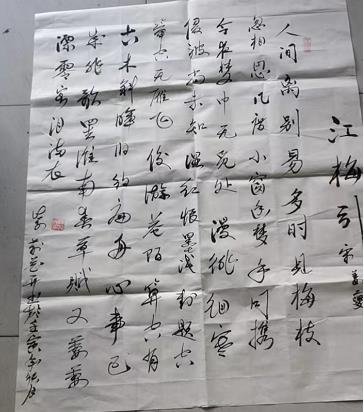 江梅引 宋 姜夔
人间离别易多时见梅枝
忽相思几度小窗幽梦手同携
今夜梦中无觅处漫徘徊寒
侵被尚未知湿红恨墨浅封题宝
筝空无雁飞俊游巷陌算空有
古木斜晖旧约扁舟心事已
成非歌罢淮南春草赋又萋萋
漂零客泪满衣